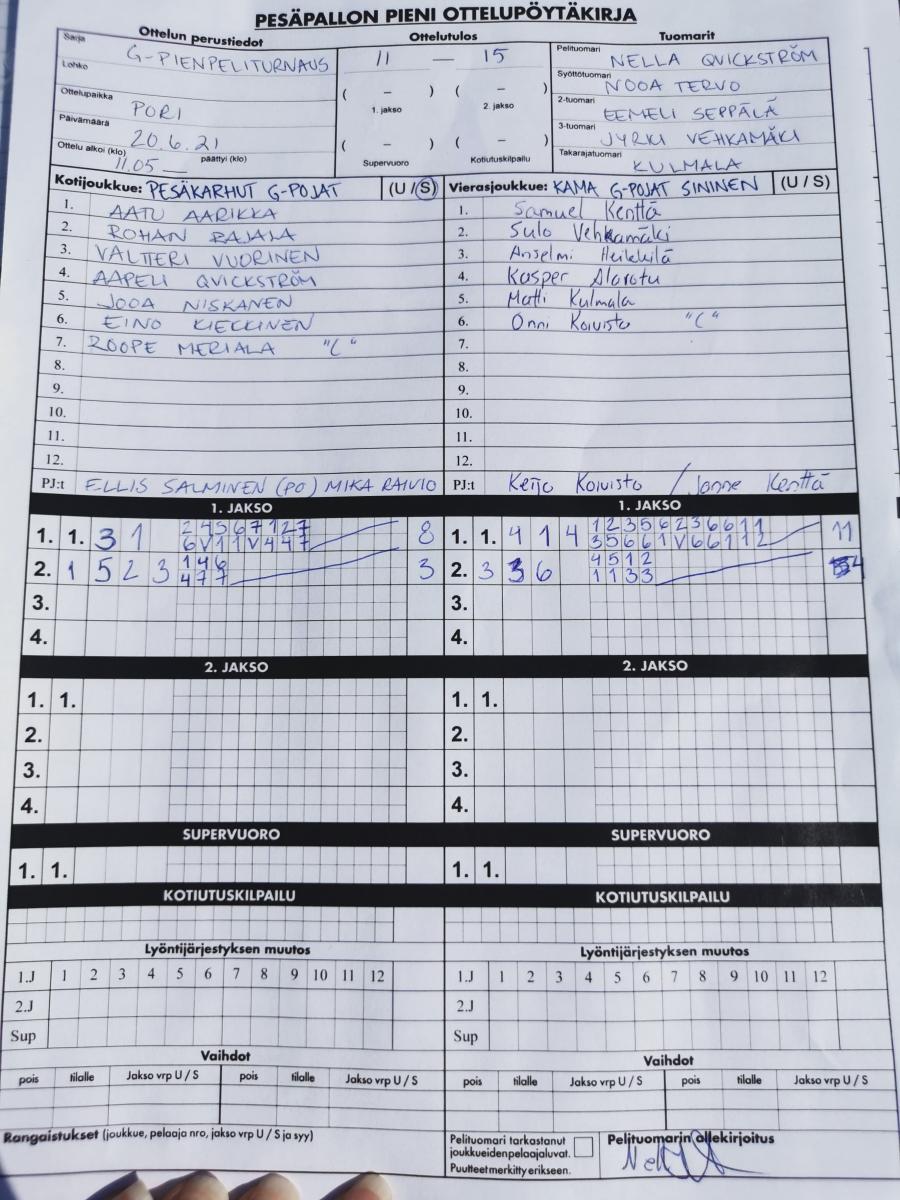 PESÄPALLON PIENI OTTELUPÖYTÄKIRJA
Ottelun perustiedot
Ottelutulos
Tuomarit
Sarja G-PIENPELITURNAUS
Lohko
Ottelupaikka PORI
Päivämäärä 20.6.21
Ottelu alkoi (klo) 11.05 päättyi (klo)
11 — 15
( – ) ( – )
1. jakso 2. jakso
( – ) ( – )
Supervuoro Kotiutuskilpailu
Pelituomari NELLA QVICKSTRÖM
Syöttötuomari NOOA TERVO
2-tuomari EEMELI SEPPÄLÄ
3-tuomari JYRKI VEHKAMÄKI
Takarajatuomari KULMALA
Kotijoukkue: PESÄKARHUT G-POJAT (U / S)
1. AATU AARIKKA
2. ROHAN RAJALA
3. VALTTERI VUORINEN
4. AAPELI QVICKSTRÖM
5. JOOA NISKANEN
6. EINO KIEKKINEN
7. ROOPE MERIALA "C"
8.
9.
10.
11.
12.
PJ:t ELLIS SALMINEN (PO) MIKA RAIVIO
Vierasjoukkue: KAMA G-POJAT SININEN (U / S)
1. Samuel Kenttä
2. Sulo Vehkamäki
3. Anselmi Heikkilä
4. Kasper Alarotu
5. Matti Kulmala
6. Onni Koivisto "C"
7.
8.
9.
10.
11.
12.
PJ:t Keijo Koivisto / Janne Kenttä
1. JAKSO
1. 1. 3 1 2 4 5 6 7 1 2 7 8
6 V 1 1 V 4 4 7
2. 1 5 2 3 1 4 6 3
4 7 7
3.
4.
1. JAKSO
1. 1. 4 1 4 1 2 3 5 6 2 3 6 6 1 1 11
3 5 6 6 1 V 6 6 1 1 2
2. 3 3 6 4 5 1 2 4
1 1 3 3
3.
4.
2. JAKSO
1. 1.
2.
3.
4.
2. JAKSO
1. 1.
2.
3.
4.
SUPERVUORO
1. 1.
SUPERVUORO
1. 1.
KOTIUTUSKILPAILU
KOTIUTUSKILPAILU
Lyöntijärjestyksen muutos
1.J 1 2 3 4 5 6 7 8 9 10 11 12
2.J
Sup
Lyöntijärjestyksen muutos
1.J 1 2 3 4 5 6 7 8 9 10 11 12
2.J
Sup
Vaihdot
pois tilalle Jakso vrp U / S pois tilalle Jakso vrp U / S
Vaihdot
pois tilalle Jakso vrp U / S pois tilalle Jakso vrp U / S
Rangaistukset (joukkue, pelaaja nro, jakso vrp U / S ja syy)
Pelituomari tarkastanut
joukkueiden pelaajaluvat.
Puutteet merkitty erikseen.
Pelituomarin allekirjoitus